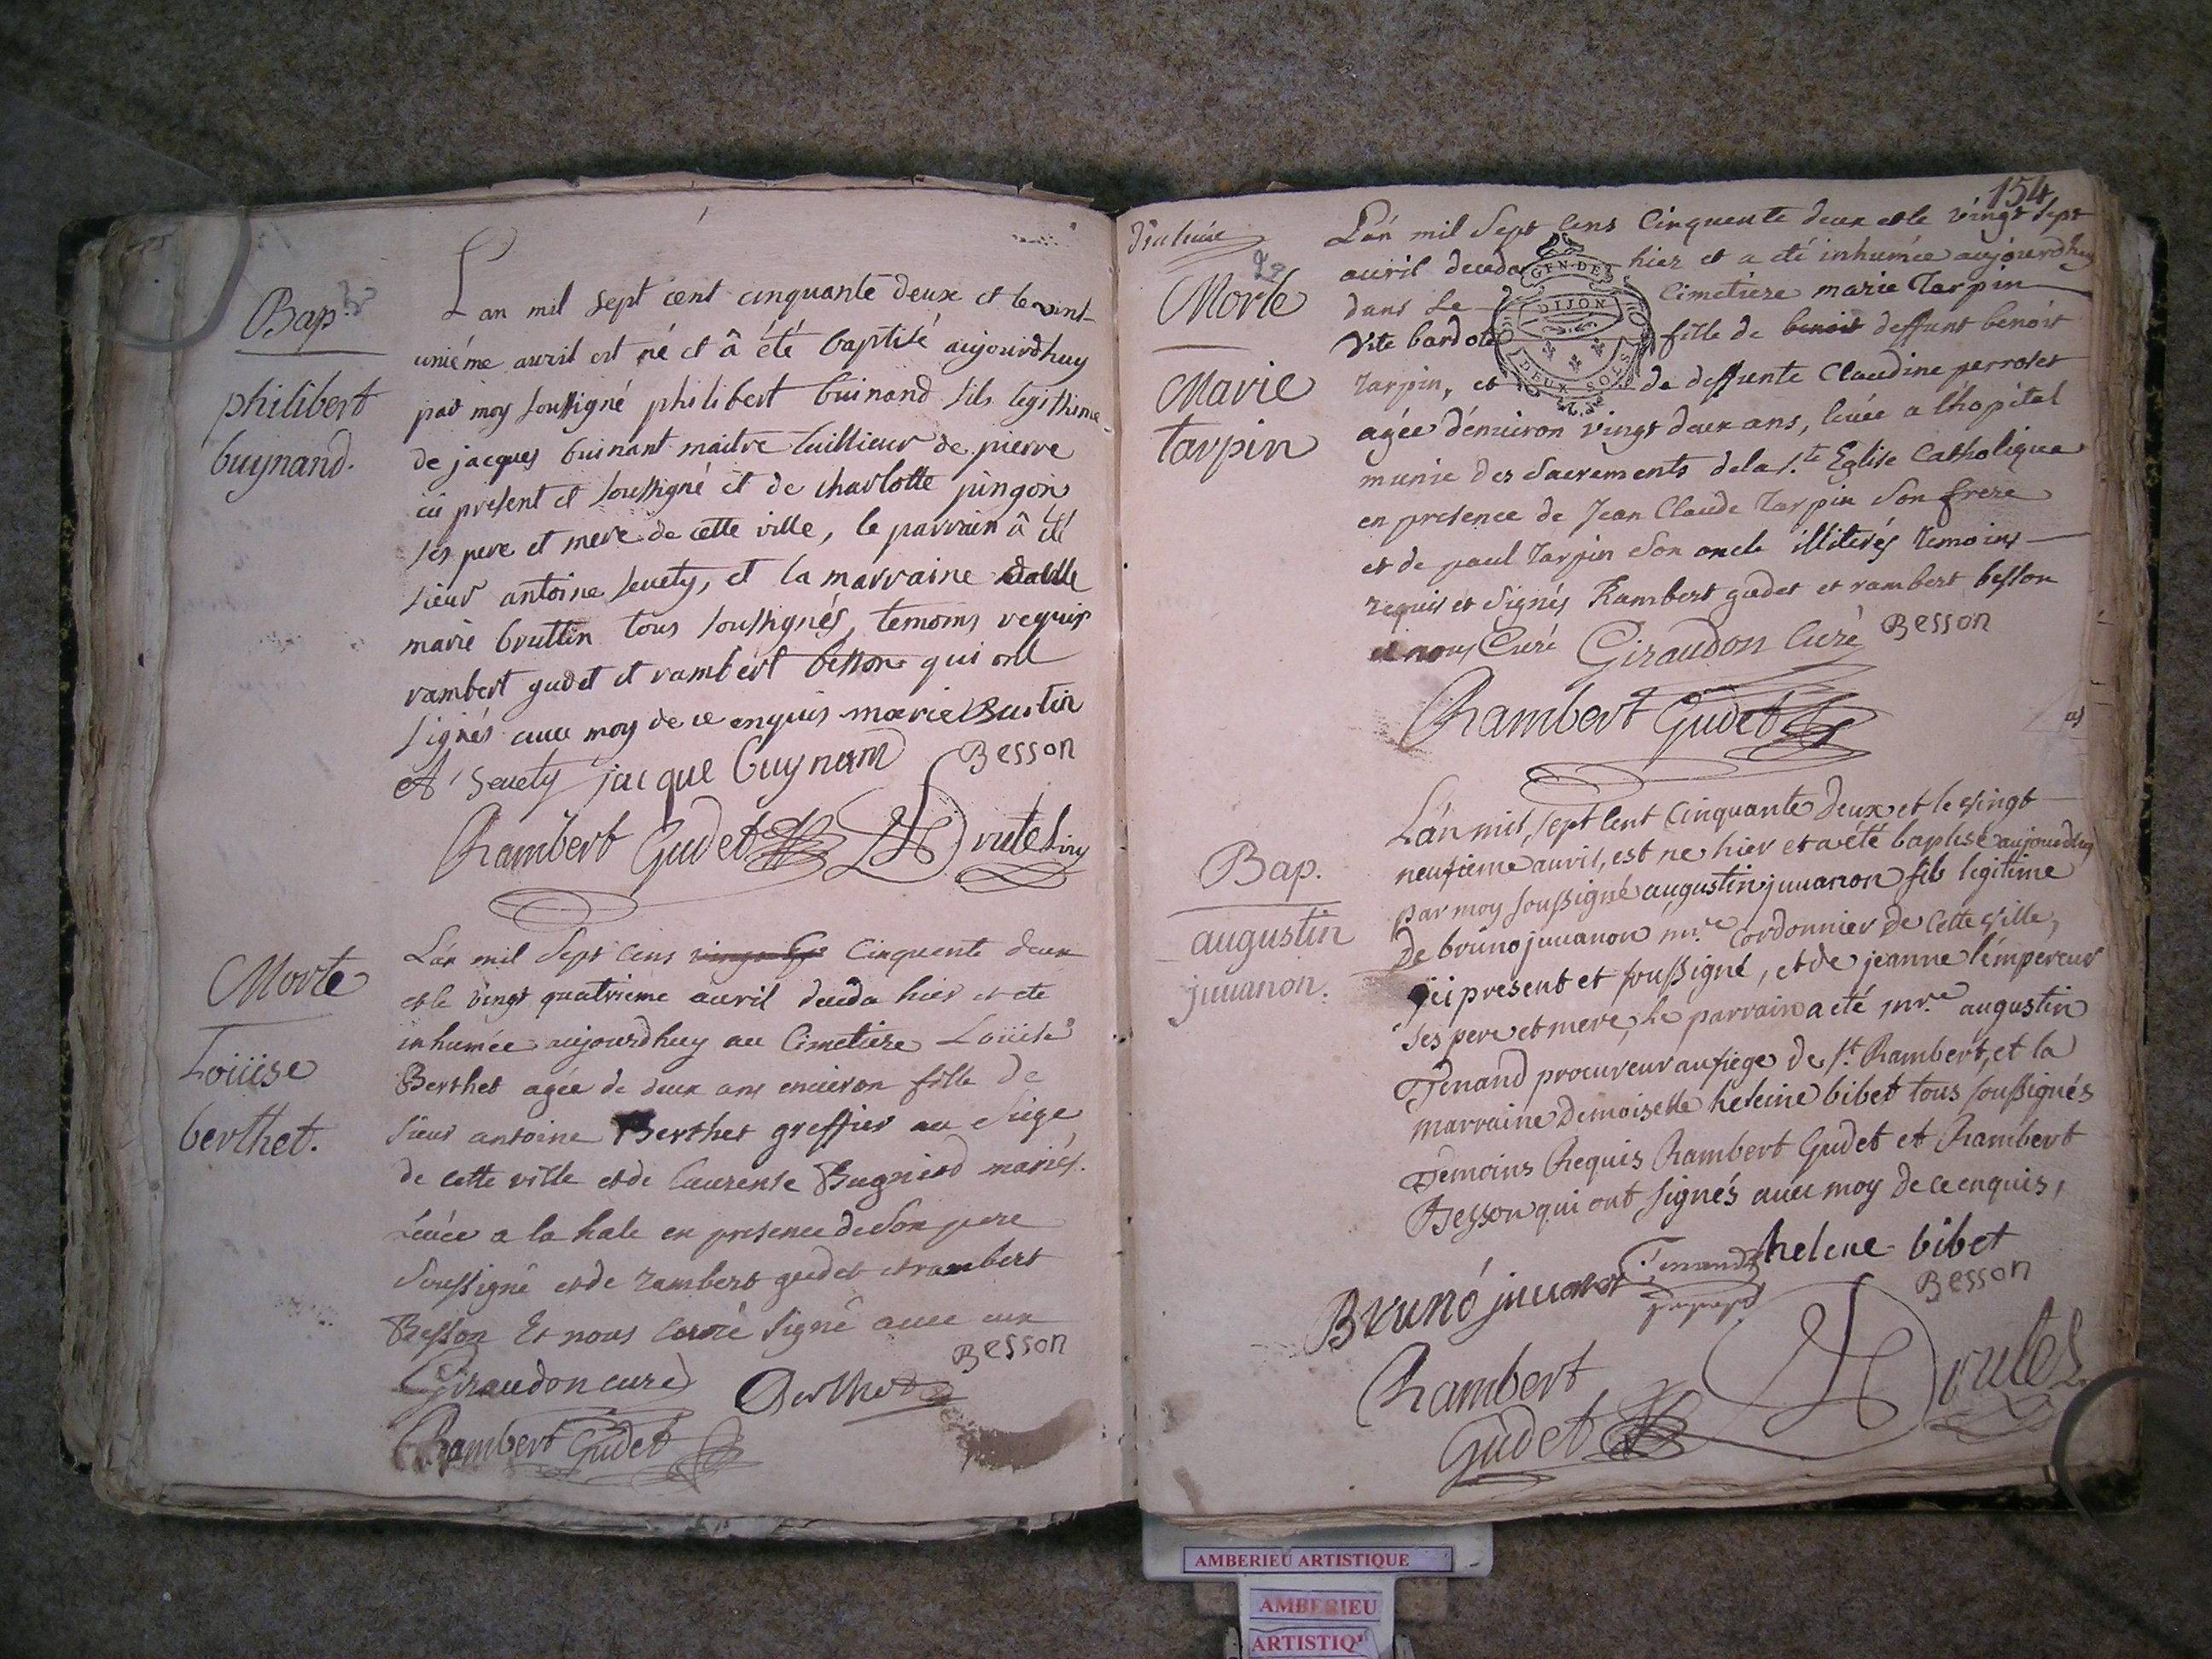 Bap.
philibert
buynand.
Lan mil sept cent cinquante deux et le vint
uniéme avril est né et â été baptisé aujourdhuy
par moy soussigné philibert buinand fils legithime
de jacques buinant maitre tuillieur de pierre
icii present et soussigné et de charlotte pingon
ses pere et mere de cette ville, le parrain â été
sieur antoine seuety, et la marraine
marie bruttin tous soussignés, temoins requis
rambert gudet et rambert besson qui ont
signés avec moy de ce enquis marie Bustin
A Seuety jacque Guynand Besson
Rambert Gudet
Morte
Loüise
berthet.
Lán mil Sept Cens Cinquente deux
et le vingt quatrieme avril deceda hier et ete
inhumée aujourdhuy au Cimetiere Loüise
Berthet agée de deux ans enuiron fille de
sieur antoine Berthet greffier au Siége
de cette ville et de Laurense Bugniod mariés.
Leuée a la hale en presence de Son pere
Soussigné et de rambert gudet et rambert
Besson Et nous Curé signé avec eux
Besson
Giraudon curé Berthet
Rambert Gudet
154
Morte
Marie
tarpin
Lán mil Sept Cens Cinquente deux et le vingt sept
avril deceda hier et a été inhumée aujourdhuy
dans Le Cimetiere marie Tarpin
Vite bardot fille de benoit deffunt benoit
Tarpin, et de deffunte Claudine perroset
agée d'enuiron vingt deux ans, leuée a l'hopital
munie des Sacrements de la S.te Eglise Catholique
en presence de Jean Claude Tarpin Son frere
et de paul Tarpin Son oncle illiterés Temoins
requis et Signés Rambert gudet et rambert besson
et nous Curé Giraudon Curé Besson
Rambert Gudet
Bap.
augustin
juuanon.
Lán mil, sept Cent Cinquante Deux et le vingt
neufieme avril, est ne hier et a été baptisé aujourdhuy
par moy soussigné augustin juuanon fils legitime
De bruno juuanon m.re Cordonnier de Cette ville,
ici present et soussigné, et de jeanne l'émpereur
ses pere et mere, Le parrain a eté m.re augustin
Tenand procureur au siege de S.t Rambert, et la
marraine Demoiselle heleine bibet tous soussignés
Témoins Requis Rambert Gudet et Rambert
Besson qui ont signés avec moy de ce enquis,
Bruno juuanon Tenand helene bibet
Besson
Rambert
Gudet
GEN. DE DIJON
DEUX SOLS
AMBERIEU ARTISTIQUE
AMBERIEU
ARTISTIQ